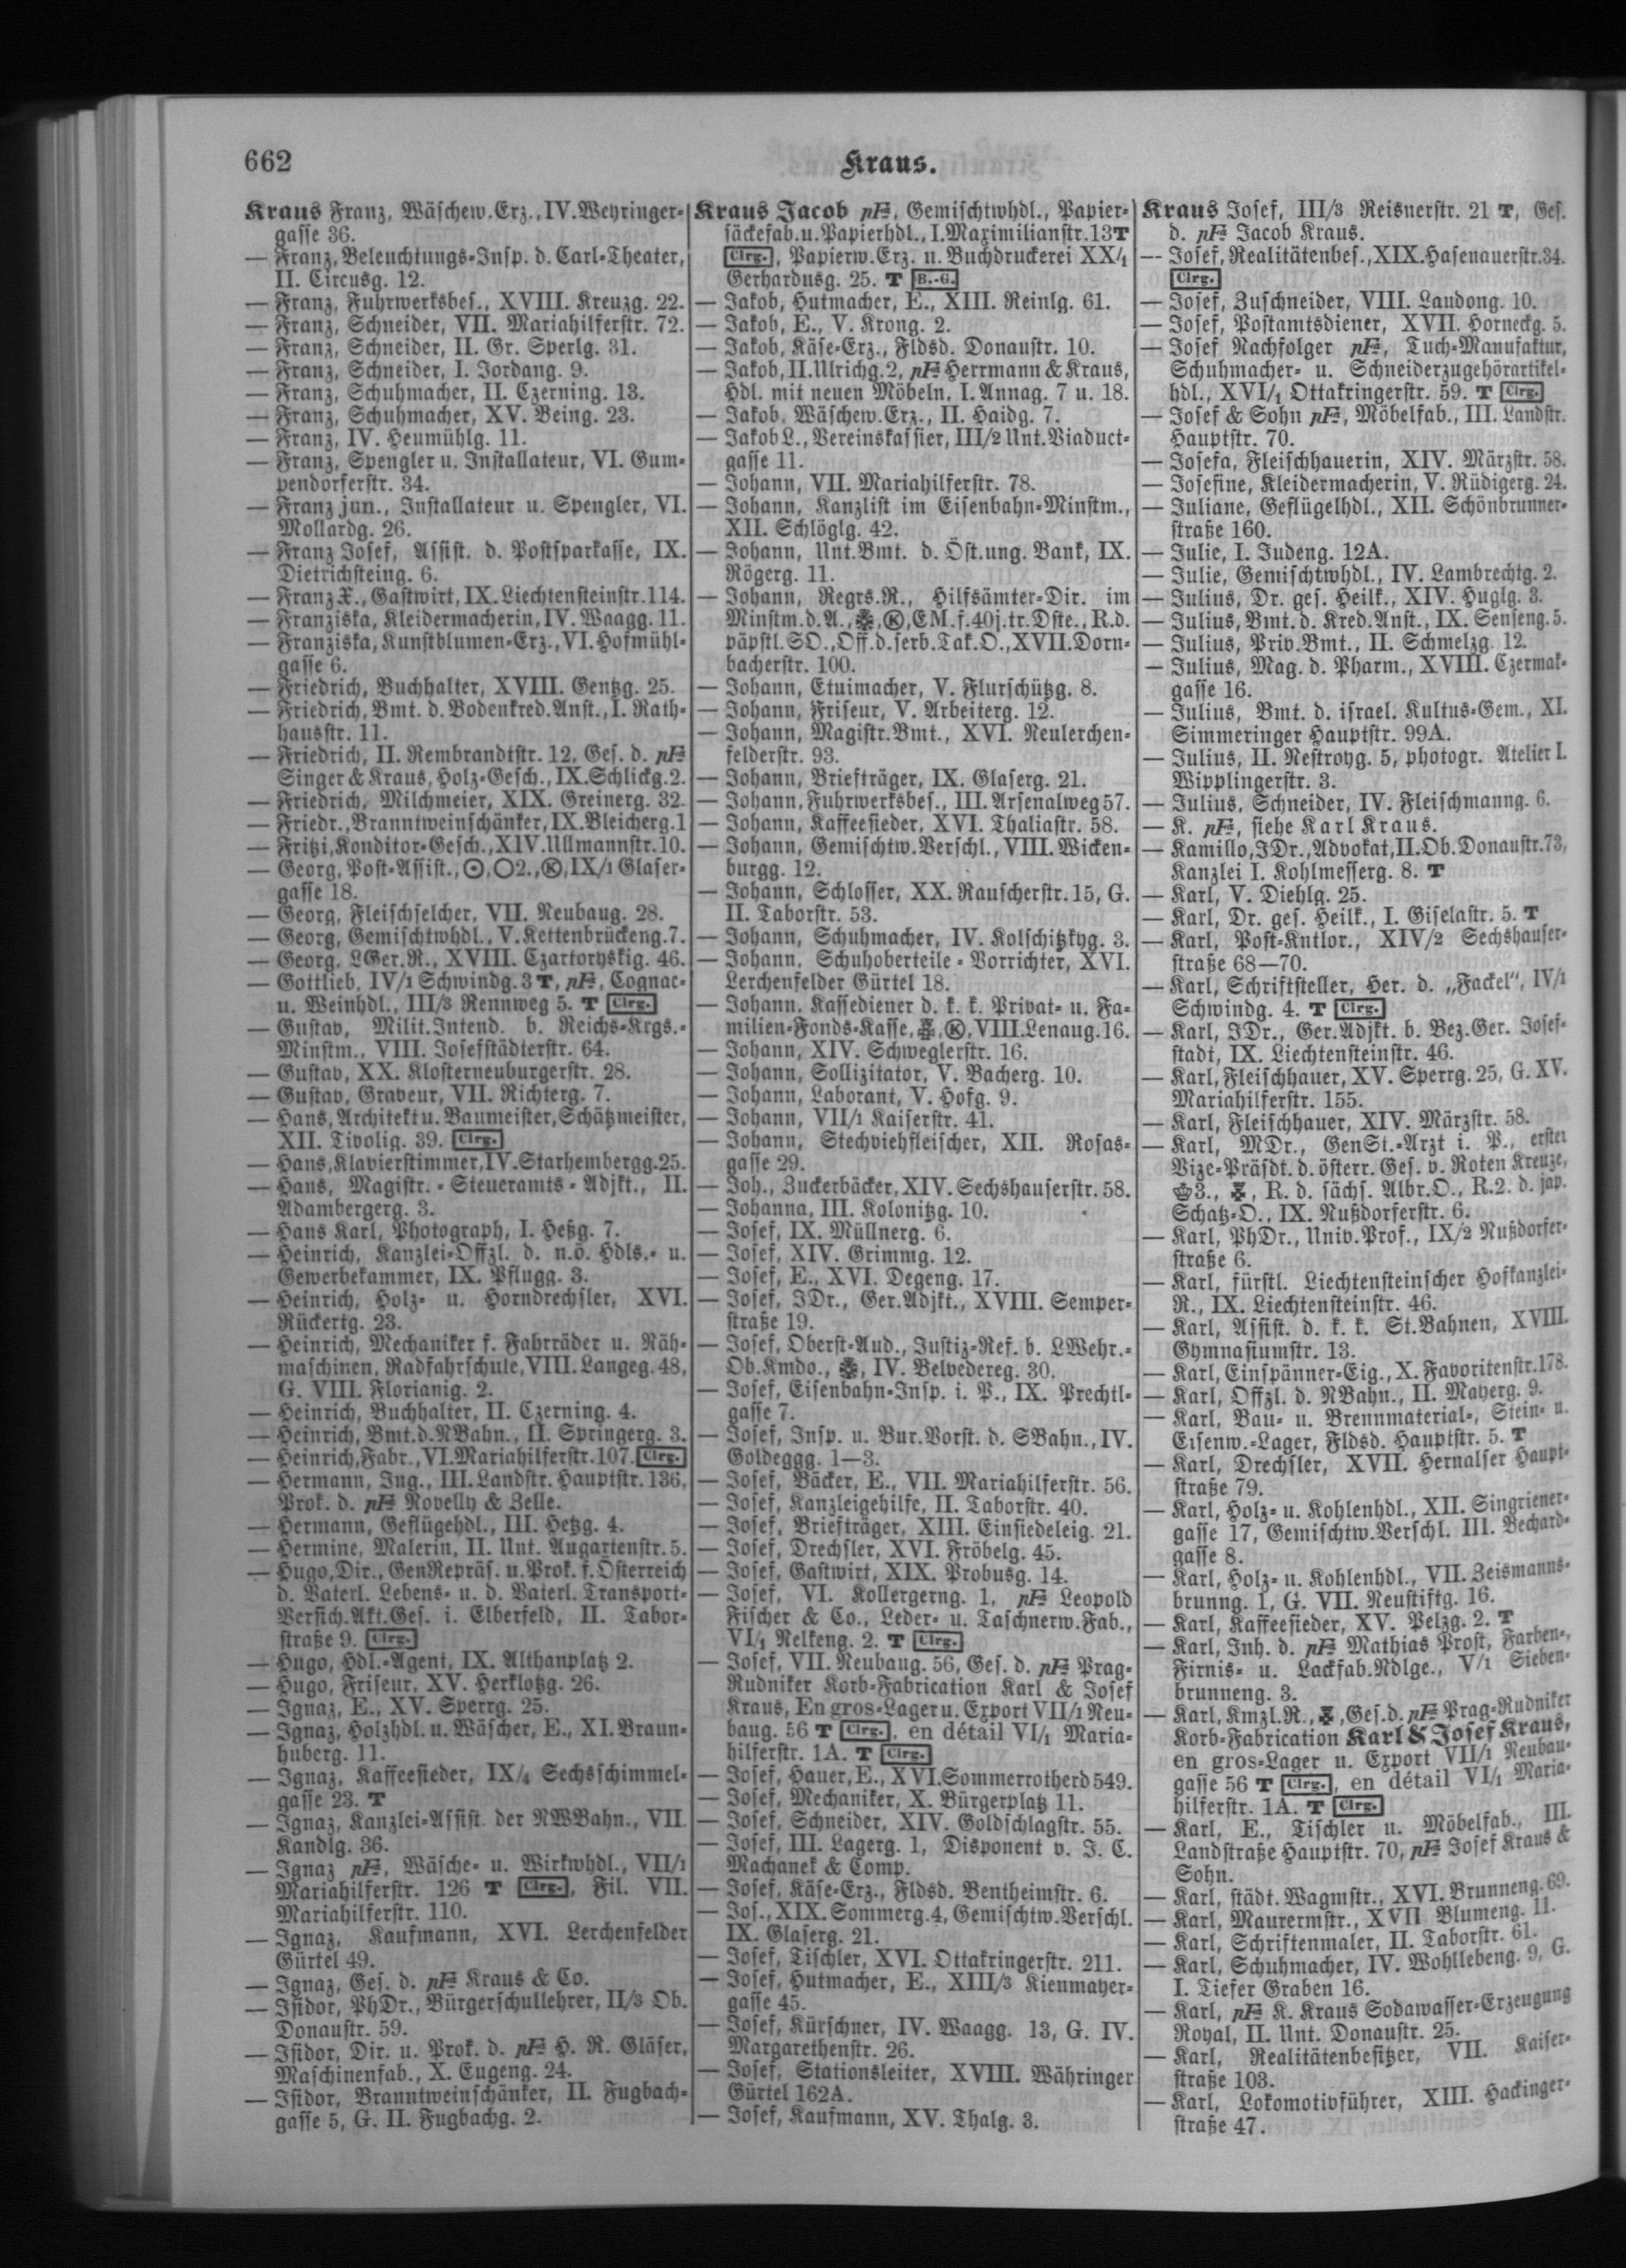 662
Kraus.
Kraus Franz, Wäschew.Erz., IV. Weyringer-
gasse 36.
— Franz, Beleuchtungs-Insp. d. Carl-Theater,
II. Circusg. 12.
— Franz, Fuhrwerksbes., XVIII. Kreuzg. 22.
— Franz, Schneider, VII. Mariahilferstr. 72.
— Franz, Schneider, II. Gr. Sperlg. 31.
— Franz, Schneider, I. Jordang. 9.
— Franz, Schuhmacher, II. Czerning. 13.
— Franz, Schuhmacher, XV. Being. 23.
— Franz, IV. Heumühlg. 11.
— Franz, Spengler u. Installateur, VI. Gum-
pendorferstr. 34.
— Franz jun., Installateur u. Spengler, VI.
Mollardg. 26.
— Franz Josef, Assist. d. Postsparkasse, IX.
Dietrichsteing. 6.
— Franz X., Gastwirt, IX. Liechtensteinstr. 114.
— Franziska, Kleidermacherin, IV. Waagg. 11.
— Franziska, Kunstblumen-Erz., VI. Hofmühl-
gasse 6.
— Friedrich, Buchhalter, XVIII. Gentzg. 25.
— Friedrich, Bmt. d. Bodenkred.Anst., I. Rath-
hausstr. 11.
— Friedrich, II. Rembrandtstr. 12, Ges. d. pFa
Singer & Kraus, Holz-Gesch., IX. Schlickg. 2.
— Friedrich, Milchmeier, XIX. Greinerg. 32.
— Friedr., Branntweinschänker, IX. Bleicherg. 1
— Fritzi, Konditor-Gesch., XIV. Ullmannstr. 10.
— Georg, Post-Assist., ⊙, ○2., Ⓚ, IX/1 Glaser-
gasse 18.
— Georg, Fleischselcher, VII. Neubaug. 28.
— Georg, Gemischtwhdl., V. Kettenbrückeng. 7.
— Georg, LGer.R., XVIII. Czartoryskig. 46.
— Gottlieb, IV/1 Schwindg. 3 T, pFa, Cognac-
u. Weinhdl., III/3 Rennweg 5. T Clrg.
— Gustav, Milit.Intend. b. Reichs-Krgs.-
Minstm., VIII. Josefstädterstr. 64.
— Gustav, XX. Klosterneuburgerstr. 28.
— Gustav, Graveur, VII. Richterg. 7.
— Hans, Architekt u. Baumeister, Schätzmeister,
XII. Tivolig. 39. Clrg.
— Hans, Klavierstimmer, IV. Starhembergg. 25.
— Hans, Magistr.-Steueramts-Adjkt., II.
Adambergerg. 3.
— Hans Karl, Photograph, I. Heßg. 7.
— Heinrich, Kanzlei-Offzl. d. n.ö. Hdls.- u.
Gewerbekammer, IX. Pflugg. 3.
— Heinrich, Holz- u. Horndrechsler, XVI.
Rückertg. 23.
— Heinrich, Mechaniker f. Fahrräder u. Näh-
maschinen, Radfahrschule, VIII. Langeg. 48,
G. VIII. Florianig. 2.
— Heinrich, Buchhalter, II. Czerning. 4.
— Heinrich, Bmt. d. NBahn., II. Springerg. 3.
— Heinrich, Fabr., VI. Mariahilferstr. 107. Clrg.
— Hermann, Ing., III. Landstr. Hauptstr. 136,
Prok. d. pFa Novelly & Zelle.
— Hermann, Geflügehdl., III. Hetzg. 4.
— Hermine, Malerin, II. Unt. Augartenstr. 5.
— Hugo, Dir., GenRepräs. u. Prok. f. Österreich
d. Vaterl. Lebens- u. d. Vaterl. Transport-
Versich.Akt.Ges. i. Elberfeld, II. Tabor-
straße 9. Clrg.
— Hugo, Hdl.-Agent, IX. Althanplatz 2.
— Hugo, Friseur, XV. Herklotzg. 26.
— Ignaz, E., XV. Sperrg. 25.
— Ignaz, Holzhdl. u. Wäscher, E., XI. Braun-
huberg. 11.
— Ignaz, Kaffeesieder, IX/4 Sechsschimmel-
gasse 23. T
— Ignaz, Kanzlei-Assist. der NWBahn., VII.
Kandlg. 36.
— Ignaz pFa, Wäsche- u. Wirkwhdl., VII/1
Mariahilferstr. 126 T Clrg., Fil. VII.
Mariahilferstr. 110.
— Ignaz, Kaufmann, XVI. Lerchenfelder
Gürtel 49.
— Ignaz, Ges. d. pFa Kraus & Co.
— Isidor, PhDr., Bürgerschullehrer, II/3 Ob.
Donaustr. 59.
— Isidor, Dir. u. Prok. d. pFa H. R. Gläser,
Maschinenfab., X. Eugeng. 24.
— Isidor, Branntweinschänker, II. Fugbach-
gasse 5, G. II. Fugbachg. 2.
Kraus Jacob pFa, Gemischtwhdl., Papier-
säckefab. u. Papierhdl., I. Maximilianstr. 13 T
Clrg., Papierw.Erz. u. Buchdruckerei XX/1
Gerhardusg. 25. T B.-G.
— Jakob, Hutmacher, E., XIII. Reinlg. 61.
— Jakob, E., V. Krong. 2.
— Jakob, Käse-Erz., Fldsd. Donaustr. 10.
— Jakob, II. Ullrichg. 2, pFa Herrmann & Kraus,
Hdl. mit neuen Möbeln, I. Annag. 7 u. 18.
— Jakob, Wäschew.Erz., II. Haidg. 7.
— Jakob L., Vereinskassier, III/2 Unt. Viaduct-
gasse 11.
— Johann, VII. Mariahilferstr. 78.
— Johann, Kanzlist im Eisenbahn-Minstm.,
XII. Schlöglg. 42.
— Johann, Unt.Bmt. d. Öst.ung. Bank, IX.
Rögerg. 11.
— Johann, Regrs.R., Hilfsämter-Dir. im
Minstm. d. A., Ⓚ, EM. f. 40j. tr. Dste., R. d.
päpstl. SO., Off. d. serb. Tak. O., XVII. Dorn-
bacherstr. 100.
— Johann, Etuimacher, V. Flurschützg. 8.
— Johann, Friseur, V. Arbeiterg. 12.
— Johann, Magistr.Bmt., XVI. Neulerchen-
felderstr. 93.
— Johann, Briefträger, IX. Glaserg. 21.
— Johann, Fuhrwerksbes., III. Arsenalweg 57.
— Johann, Kaffeesieder, XVI. Thaliastr. 58.
— Johann, Gemischtw.Verschl., VIII. Wicken-
burgg. 12.
— Johann, Schlosser, XX. Rauscherstr. 15, G.
II. Taborstr. 53.
— Johann, Schuhmacher, IV. Kolschitzkyg. 3.
— Johann, Schuhoberteile-Vorrichter, XVI.
Lerchenfelder Gürtel 18.
— Johann, Kassediener d. k. k. Privat- u. Fa-
milien-Fonds-Kasse, Ⓚ, VIII. Lenaug. 16.
— Johann, XIV. Schweglerstr. 16.
— Johann, Sollizitator, V. Bacherg. 10.
— Johann, Laborant, V. Hofg. 9.
— Johann, VII/1 Kaiserstr. 41.
— Johann, Stechviehfleischer, XII. Rosas-
gasse 29.
— Joh., Zuckerbäcker, XIV. Sechshauserstr. 58.
— Johanna, III. Kolonitzg. 10.
— Josef, IX. Müllnerg. 6.
— Josef, XIV. Grimmg. 12.
— Josef, E., XVI. Degeng. 17.
— Josef, JDr., Ger.Adjkt., XVIII. Semper-
straße 19.
— Josef, Oberst-Aud., Justiz-Ref. b. LWehr.-
Ob.Kmdo., IV. Belvedereg. 30.
— Josef, Eisenbahn-Insp. i. P., IX. Prechtl-
gasse 7.
— Josef, Insp. u. Bur.Vorst. d. SBahn., IV.
Goldeggg. 1—3.
— Josef, Bäcker, E., VII. Mariahilferstr. 56.
— Josef, Kanzleigehilfe, II. Taborstr. 40.
— Josef, Briefträger, XIII. Einsiedeleig. 21.
— Josef, Drechsler, XVI. Fröbelg. 45.
— Josef, Gastwirt, XIX. Probusg. 14.
— Josef, VI. Kollergerng. 1, pFa Leopold
Fischer & Co., Leder- u. Taschnerw.Fab.,
VI/1 Nelkeng. 2. T Clrg.
— Josef, VII. Neubaug. 56, Ges. d. pFa Prag-
Rudniker Korb-Fabrication Karl & Josef
Kraus, En gros-Lager u. Export VII/1 Neu-
baug. 56 T Clrg., en détail VI/1 Maria-
hilferstr. 1A. T Clrg.
— Josef, Hauer, E., XVI. Sommerrotherd 549.
— Josef, Mechaniker, X. Bürgerplatz 11.
— Josef, Schneider, XIV. Goldschlagstr. 55.
— Josef, III. Lagerg. 1, Disponent v. J. C.
Machanek & Comp.
— Josef, Käse-Erz., Fldsd. Bentheimstr. 6.
— Jos., XIX. Sommerg. 4, Gemischtw.Verschl.
IX. Glaserg. 21.
— Josef, Tischler, XVI. Ottakringerstr. 211.
— Josef, Hutmacher, E., XIII/3 Kienmayer-
gasse 45.
— Josef, Kürschner, IV. Waagg. 13, G. IV.
Margarethenstr. 26.
— Josef, Stationsleiter, XVIII. Währinger
Gürtel 162A.
— Josef, Kaufmann, XV. Thalg. 3.
Kraus Josef, III/3 Reisnerstr. 21 T, Ges.
d. pFa Jacob Kraus.
— Josef, Realitätenbes., XIX. Hasenauerstr. 34.
Clrg.
— Josef, Zuschneider, VIII. Laudong. 10.
— Josef, Postamtsdiener, XVII. Horneckg. 5.
— Josef Nachfolger pFa, Tuch-Manufaktur,
Schuhmacher- u. Schneiderzugehörartikel-
hdl., XVI/1 Ottakringerstr. 59. T Clrg.
— Josef & Sohn pFa, Möbelfab., III. Landstr.
Hauptstr. 70.
— Josefa, Fleischhauerin, XIV. Märzstr. 58.
— Josefine, Kleidermacherin, V. Rüdigerg. 24.
— Juliane, Geflügelhdl., XII. Schönbrunner-
straße 160.
— Julie, I. Judeng. 12A.
— Julie, Gemischtwhdl., IV. Lambrechtg. 2.
— Julius, Dr. ges. Heilk., XIV. Huglg. 3.
— Julius, Bmt. d. Kred.Anst., IX. Senseng. 5.
— Julius, Priv.Bmt., II. Schmelzg. 12.
— Julius, Mag. d. Pharm., XVIII. Czermak-
gasse 16.
— Julius, Bmt. d. israel. Kultus-Gem., XI.
Simmeringer Hauptstr. 99A.
— Julius, II. Nestroyg. 5, photogr. Atelier I.
Wipplingerstr. 3.
— Julius, Schneider, IV. Fleischmanng. 6.
— K. pFa, siehe Karl Kraus.
— Kamillo, JDr., Advokat, II. Ob. Donaustr. 73,
Kanzlei I. Kohlmesserg. 8. T
— Karl, V. Diehlg. 25.
— Karl, Dr. ges. Heilk., I. Giselastr. 5. T
— Karl, Post-Kntlor., XIV/2 Sechshauser-
straße 68—70.
— Karl, Schriftsteller, Her. d. „Fackel“, IV/1
Schwindg. 4. T Clrg.
— Karl, JDr., Ger.Adjkt. b. Bez.Ger. Josef-
stadt, IX. Liechtensteinstr. 46.
— Karl, Fleischhauer, XV. Sperrg. 25, G. XV.
Mariahilferstr. 155.
— Karl, Fleischhauer, XIV. Märzstr. 58.
— Karl, MDr., GenSt.-Arzt i. P., erster
Vize-Präsdt. d. österr. Ges. v. Roten Kreuze,
3., R. d. sächs. Albr.O., R.2. d. jap.
Schatz-O., IX. Nußdorferstr. 6.
— Karl, PhDr., Univ.Prof., IX/2 Nußdorfer-
straße 6.
— Karl, fürstl. Liechtensteinscher Hofkanzlei-
R., IX. Liechtensteinstr. 46.
— Karl, Assist. d. k. k. St.Bahnen, XVIII.
Gymnasiumstr. 13.
— Karl, Einspänner-Eig., X. Favoritenstr. 178.
— Karl, Offzl. d. NBahn., II. Mayerg. 9.
— Karl, Bau- u. Brennmaterial-, Stein- u.
Eisenw.-Lager, Fldsd. Hauptstr. 5. T
— Karl, Drechsler, XVII. Hernalser Haupt-
straße 79.
— Karl, Holz- u. Kohlenhdl., XII. Singriener-
gasse 17, Gemischtw.Verschl. III. Bechard-
gasse 8.
— Karl, Holz- u. Kohlenhdl., VII. Zeismanns-
brunng. 1, G. VII. Neustiftg. 16.
— Karl, Kaffeesieder, XV. Pelzg. 2. T
— Karl, Inh. d. pFa Mathias Prost, Farben-,
Firnis- u. Lackfab.Ndlge., V/1 Sieben-
brunneng. 3.
— Karl, Kmzl.R., Ges. d. pFa Prag-Rudniker
Korb-Fabrication Karl & Josef Kraus,
en gros-Lager u. Export VII/1 Neubau-
gasse 56 T Clrg., en détail VI/1 Maria-
hilferstr. 1A. T Clrg.
— Karl, E., Tischler u. Möbelfab., III.
Landstraße Hauptstr. 70, pFa Josef Kraus &
Sohn.
— Karl, städt. Wagmstr., XVI. Brunneng. 69.
— Karl, Maurermstr., XVII Blumeng. 11.
— Karl, Schriftenmaler, II. Taborstr. 61.
— Karl, Schuhmacher, IV. Wohllebeng. 9, G.
I. Tiefer Graben 16.
— Karl, pFa K. Kraus Sodawasser-Erzeugung
Royal, II. Unt. Donaustr. 25.
— Karl, Realitätenbesitzer, VII. Kaiser-
straße 103.
— Karl, Lokomotivführer, XIII. Hackinger-
straße 47.